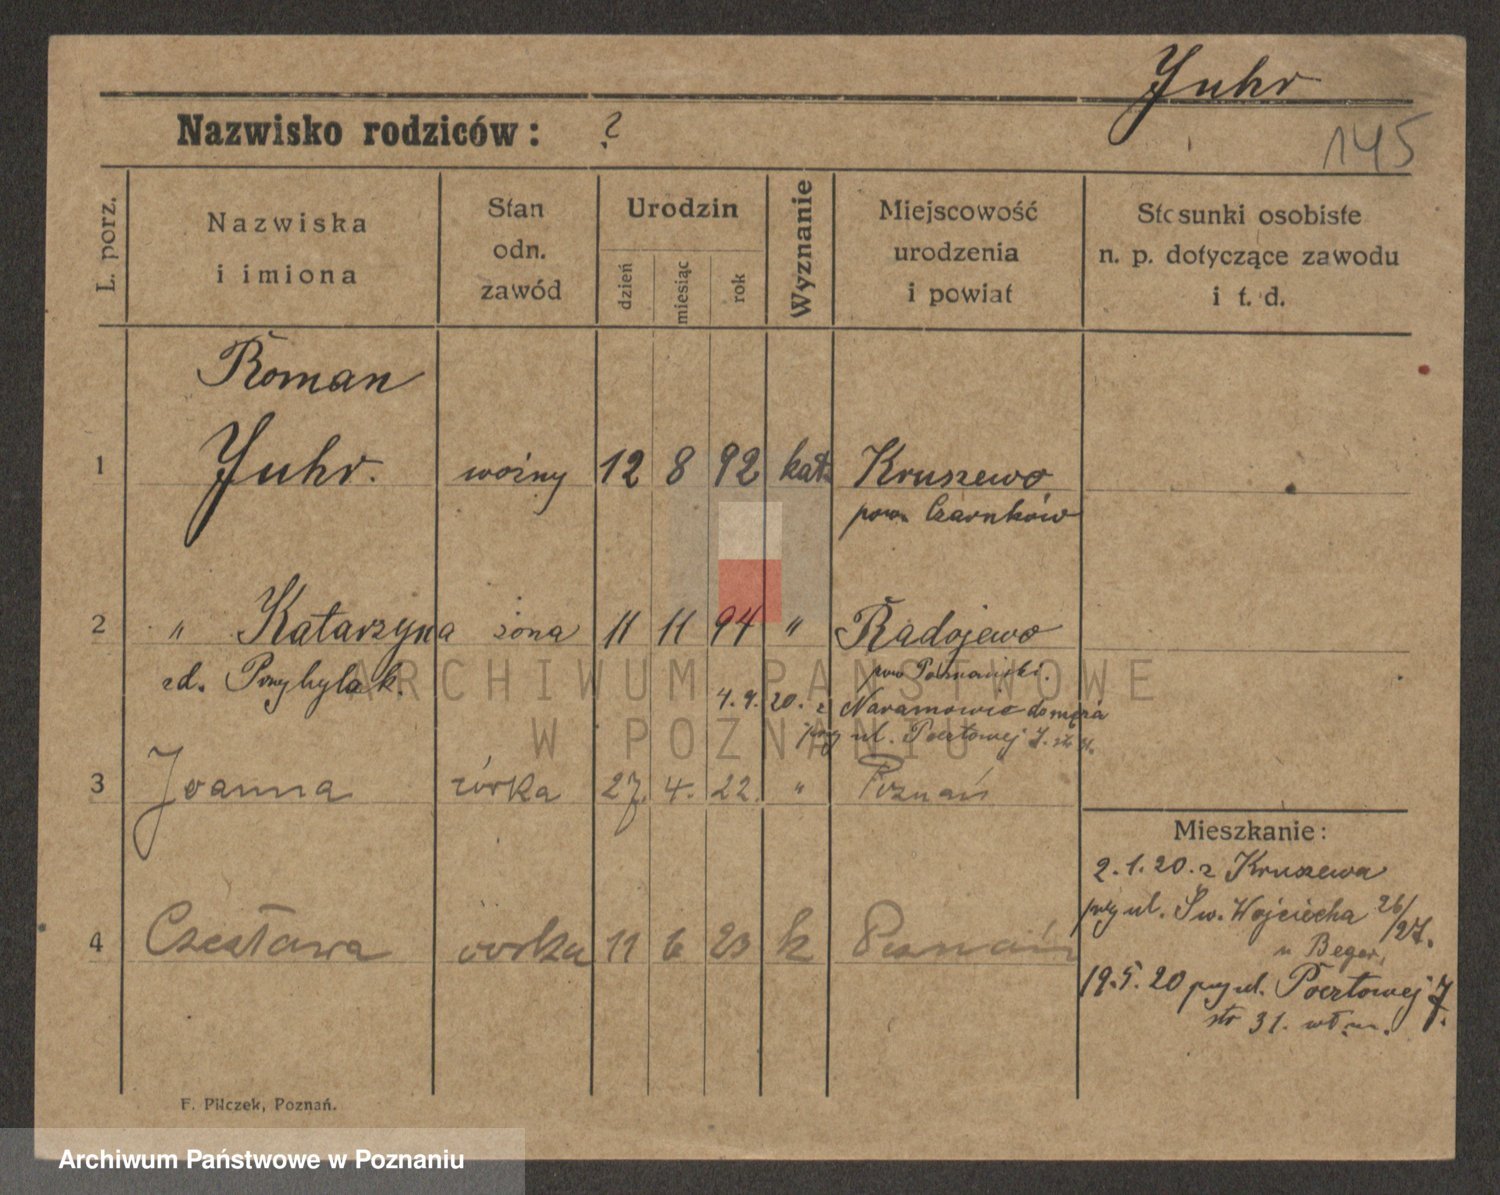 Yuhr
Nazwisko rodziców: ?
145
L. porz.
Nazwiska
i imiona
Stan
odn.
zawód
Urodzin
dzień
miesiąc
rok
Wyznanie
Miejscowość
urodzenia
i powiat
Stosunki osobiste
n. p. dotyczące zawodu
i t. d.
Roman
1 Yuhr. woźny 12 8 92 kat. Kruszewo
pow. Czarnków
2 " Katarzyna żona 11 11 94 " Radojewo
zd. Przybylak. pow Poznański.
4.9.20. z Naramowic do męża
przy ul. Pocztowej 7.
3 Joanna córka 27. 4. 22. " Poznań
4 Czesława córka 11 6 23 k Poznań
Mieszkanie:
2.1.20. z Kruszewa
przy ul. Św. Wojciecha 26/27.
u Beger,
19.5.20 przy ul. Pocztowej 7.
str 31.
F. Pilczek, Poznań.
ARCHIWUM PAŃSTWOWE
W POZNANIU
Archiwum Państwowe w Poznaniu